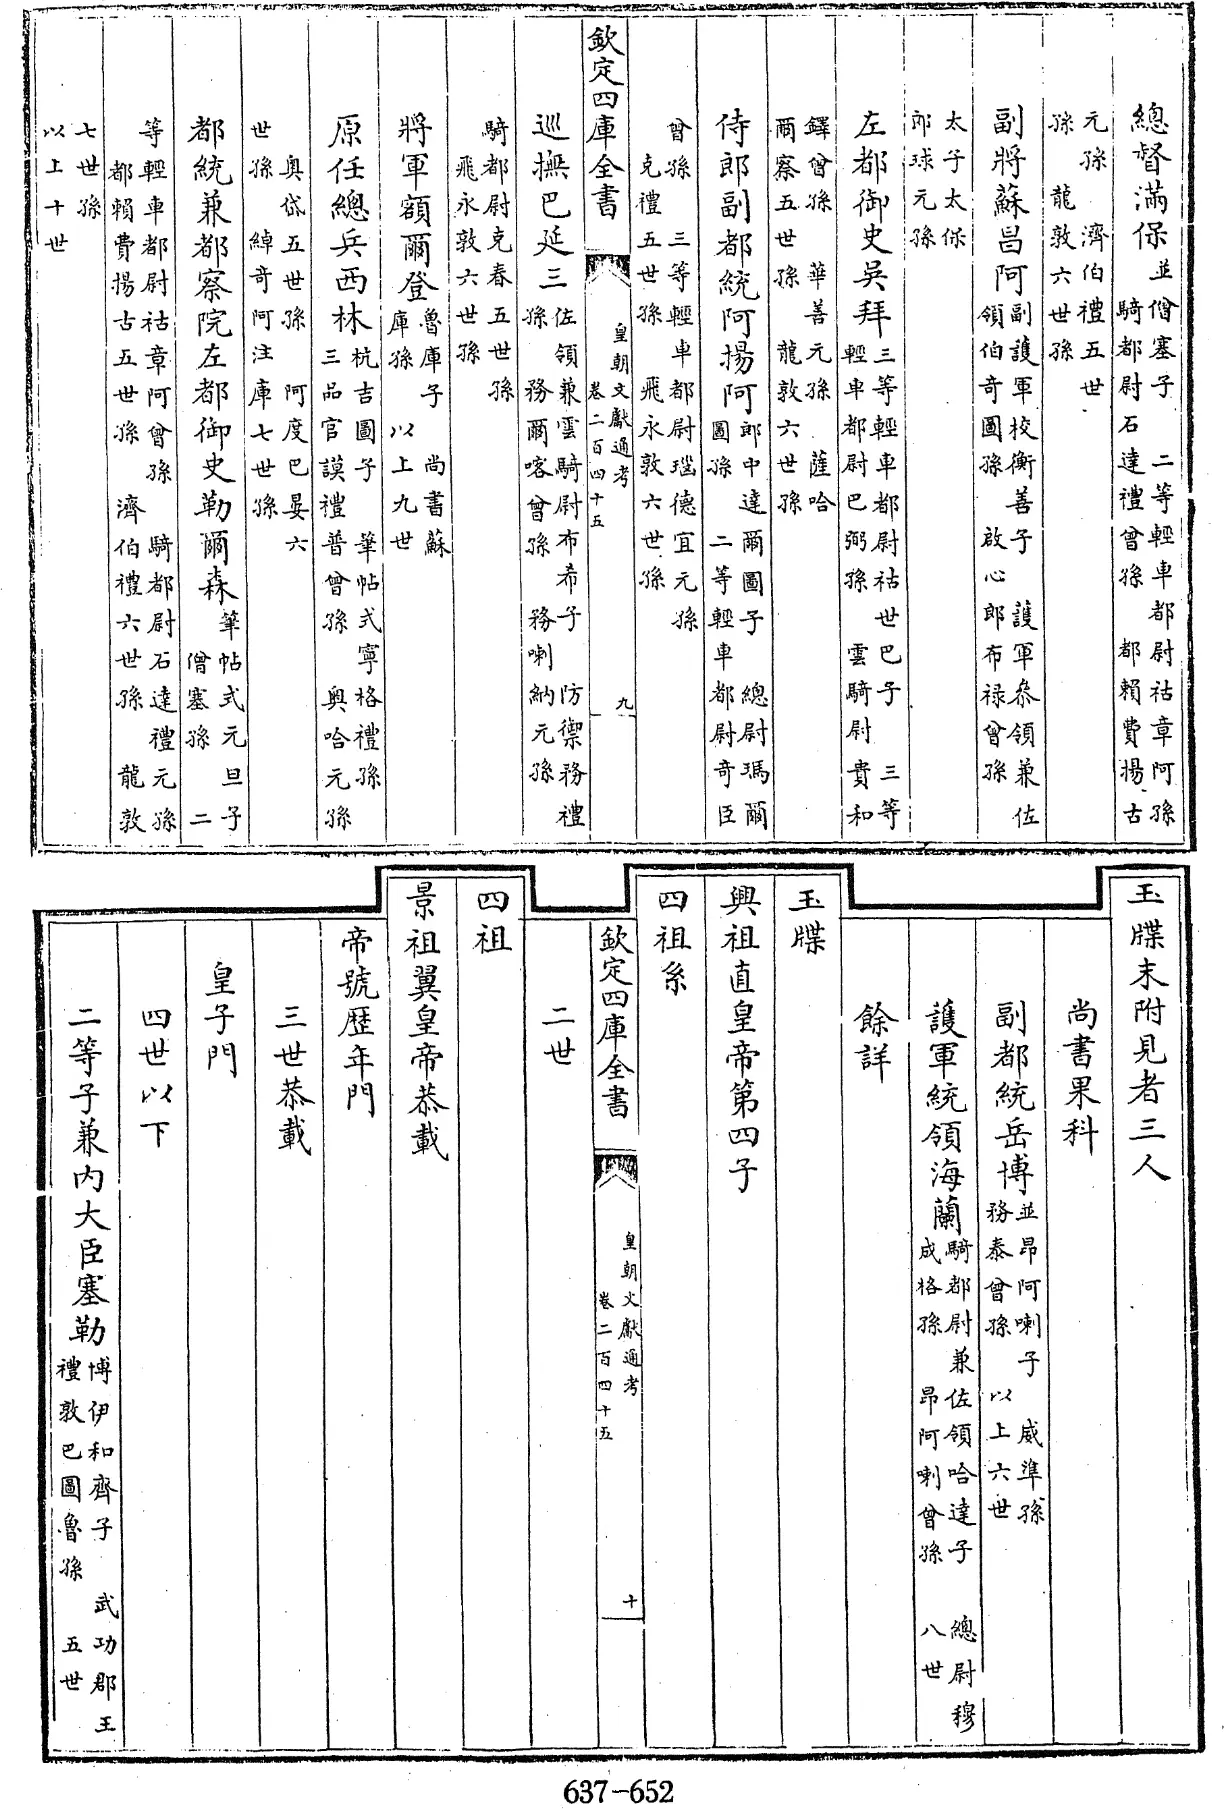 總督滿保
並僧塞子　二等輕車都尉祜章阿孫
騎都尉石達禮曾孫　都賴費揚古
元孫　濟伯禮五世
孫　龍敦六世孫
副將蘇昌阿
副護軍校衡善子　護軍叅領兼佐
領伯奇圖孫　啟心郎布祿曾孫
太子太保
郎球元孫
左都御史吳拜
三等輕車都尉祜世巴子　三等
輕車都尉巴弼孫　雲騎尉貴和
鐸曾孫　華善元孫　薩哈
爾察五世孫　龍敦六世孫
侍郎副都統阿揚阿
郎中達爾圖子　總尉瑪爾
圖孫　二等輕車都尉奇臣
曾孫　三等輕車都尉瑙德宜元孫
克禮五世孫　飛永敦六世孫
欽定四庫全書
皇朝文獻通考
卷二百四十五
九
巡撫巴延三
佐領兼雲騎尉布希子　防禦務禮
孫　務爾喀曾孫　務喇納元孫
騎都尉克春五世孫
飛永敦六世孫
將軍額爾登
魯庫子　尚書蘇
庫孫　以上九世
原任總兵西林
杭吉圖子　筆帖式寧格禮孫
三品官謨禮普曾孫　奧哈元孫
奧岱五世孫　阿度巴晏六
世孫　綽奇阿注庫七世孫
都統兼都察院左都御史勒爾森
筆帖式元旦子
僧塞孫　二
等輕車都尉祜章阿曾孫　騎都尉石達禮元孫
都賴費揚古五世孫　濟伯禮六世孫　龍敦
七世孫
以上十世
玉牒末附見者三人
尚書果科
副都統岳博
並昂阿喇子　威準孫
務泰曾孫　以上六世
護軍統領海蘭
騎都尉兼佐領哈達子　總尉穆
成格孫　昂阿喇曾孫　八世
餘詳
玉牒
興祖直皇帝第四子
四祖系
欽定四庫全書
皇朝文獻通考
卷二百四十五
十
二世
四祖
景祖翼皇帝恭載
帝號歷年門
三世恭載
皇子門
四世以下
二等子兼內大臣塞勒
博伊和齊子　武功郡王
禮敦巴圖魯孫　五世
637-652